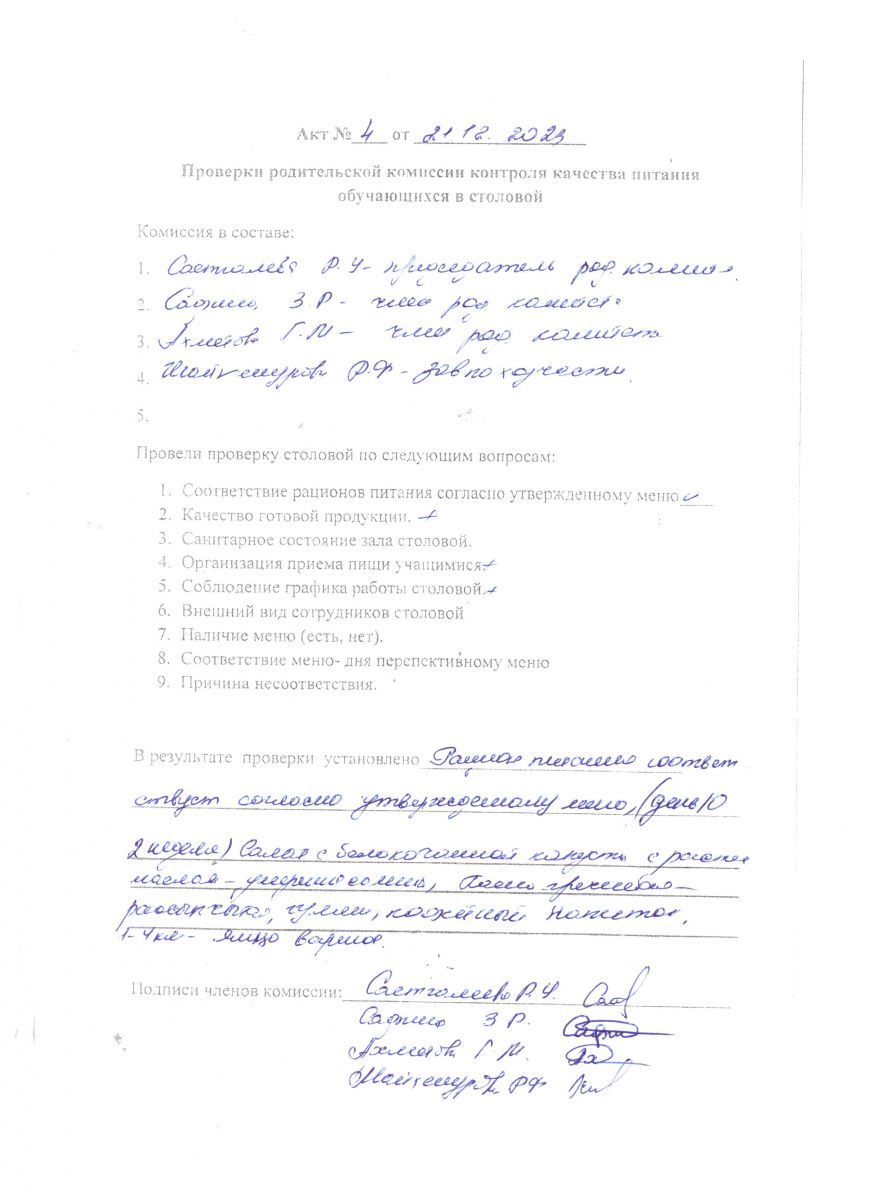 Акт № 4 от 21.12. 2023
Проверки родительской комиссии контроля качества питания
обучающихся в столовой
Комиссия в составе:
1. Саетгалеева Р.У - председатель род. комит.
2. З.Р - член род комитета
3. Ахметова Г.М - член род. комитета
4. Р.Ф - завпохозчасти.
5.
Провели проверку столовой по следующим вопросам:
1. Соответствие рационов питания согласно утвержденному меню
2. Качество готовой продукции.
3. Санитарное состояние зала столовой.
4. Организация приема пищи учащимися
5. Соблюдение графика работы столовой.
6. Внешний вид сотрудников столовой
7. Наличие меню (есть, нет).
8. Соответствие меню- дня перспективному меню
9. Причина несоответствия.
В результате проверки установлено Рацион питания соответ
ствует согласно утвержденному меню, (день 10
2 неделя) Салат с белокочанной капусты с растит
маслом - каша гречневая -
рассыпчатая, гуляш, кофейный напиток,
1-4 кл - яйцо вареное.
Подписи членов комиссии: Саетгалеева Р.У.
З Р.
Ахметова Г М.
РФ